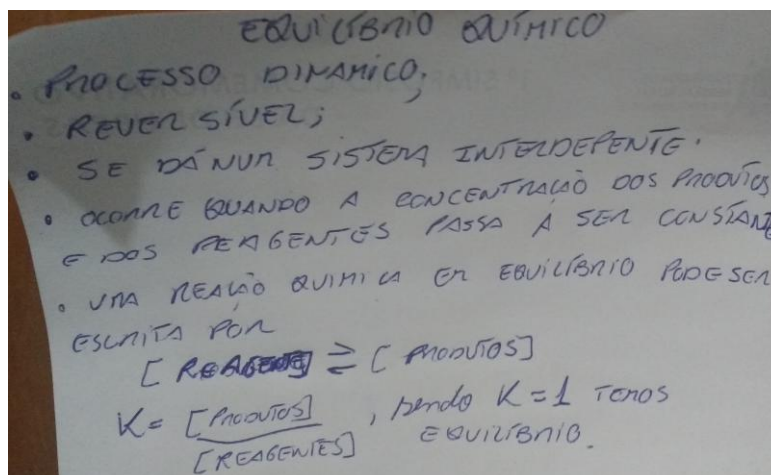 EQUILÍBRIO QUÍMICO
• PROCESSO DINAMICO;
• REVERSÍVEL;
• SE DÁ NUM SISTEMA INTERDEPENTE.
• OCORRE QUANDO A CONCENTRAÇÃO DOS PRODUTOS
E DOS REAGENTES PASSA À SER CONSTANTE
• UMA REAÇÃO QUIMICA EM EQUILÍBRIO PODE SER
ESCRITA POR
[REAGENTES] ⇌ [PRODUTOS]
K = [PRODUTOS] / [REAGENTES], sendo K = 1 TEMOS
EQUILÍBRIO.